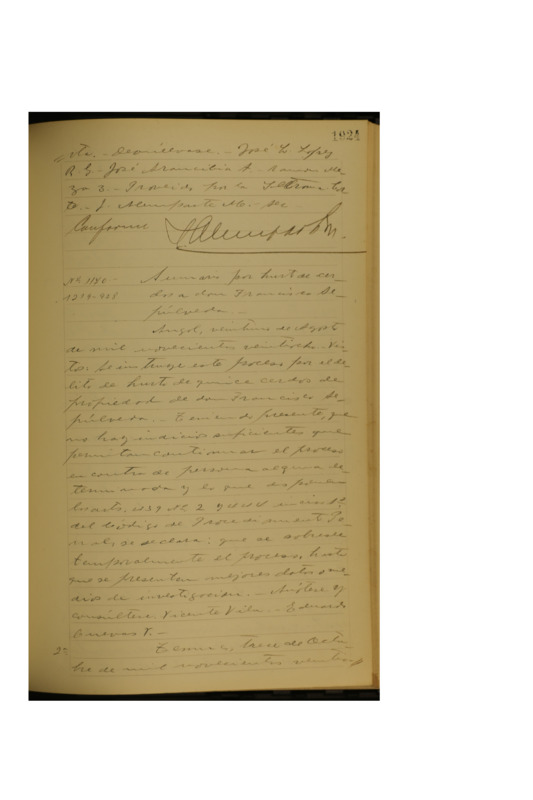 1024
vta. - Devuélvase. - José L. López
R. G. - José Arancibia A. - Ramón Me
za B. - Proveído por la Iltma. Cor
te. - J. Alempparte M. - Sec.
Conforme
Nº 1180 - Sumario por hurto de cer-
1219-928 dos a don Francisco Se-
púlveda. -
Angol, veintiuno de Agosto
de mil novecientos veintiocho. Vis-
tos: Se instruye este proceso por el de-
lito de hurto de quince cerdos de
propiedad de don Francisco Se-
púlveda. - Teniendo presente, que
no hay indicios suficientes que
permitan continuar el proceso
en contra de persona alguna de-
terminada y lo que disponen
los arts. 439 Nº 2 y inciso 1º
del Código de Procedimiento Pe-
nal, se declara: que se sobresee
temporalmente el proceso, hasta
que se presenten mejores datos o me-
dios de investigación. - Anótese y
consúltese. Vicente Vila. - Eduardo
Cuevas V. -
2ª Temuco, trece de Octu-
bre de mil novecientos veintiocho